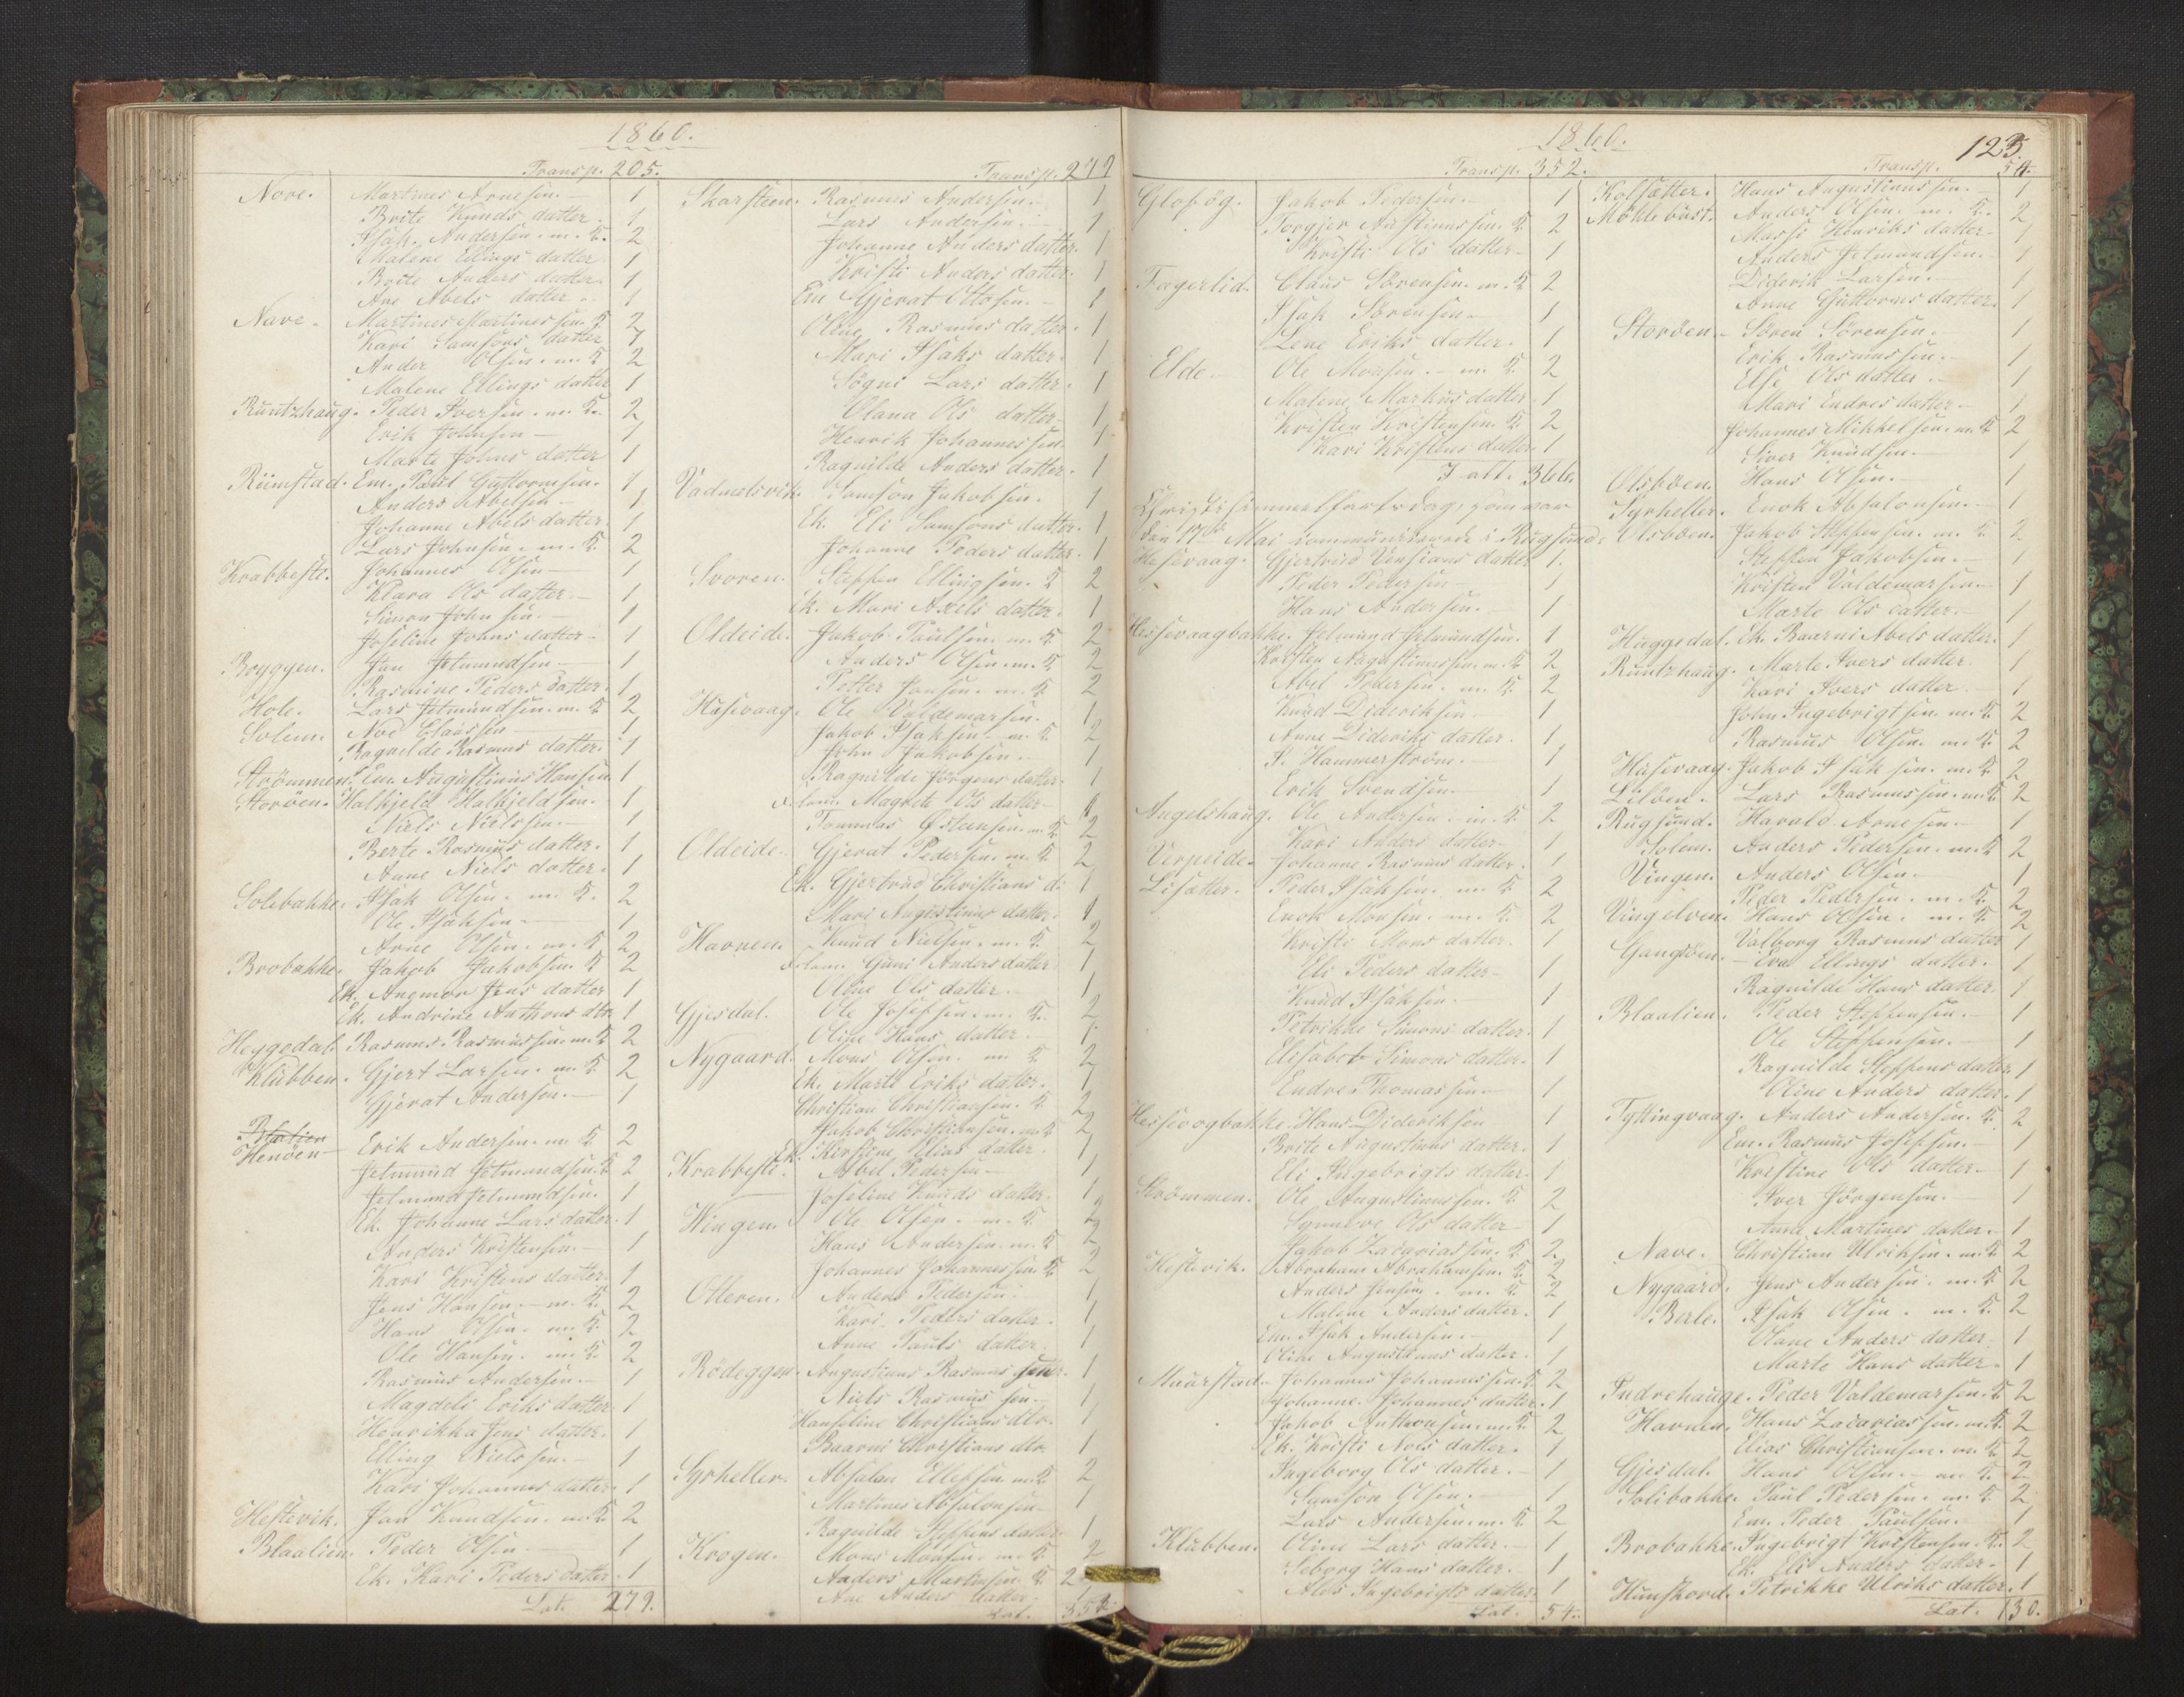 1860.
Transp. 205.
Nore. Martines Arnesen. — 1
Brite Knuds datter. 1
Isak. Andersen. m. K. 2
Malene Ellings datter 1
Brite Anders datter. 1
Ane Abels datter. 1
Nave. Martines Martinessen K 2
Kari Samsons datter 1
Ander Olsen. m. K 2
Malene Ellings datter 1
Runtzhaug. Peder Iversen. m. K. 2
Erik Johnsen — 1
Marte Johns datter 1
Riimstad. Em. Paul Guttormsen. 1
Anders Abelsen — 1
Johanne Abels datter. 1
Lars Johnsen. m. K. 2
Krabbesti. Johannes Olsen — 1
Klara Ols datter. — 1
Simon Johnsen. — 1
Joseline Johns datter — 1
Bryggen. Jan Jetmundsen — 1
Rasmine Peders datter. 1
Hole. Lars Jetmundsen. m. K 2
Solem. Noe Claussen 1
Ragnilde Rasmus datter. 1
Strömmen. Em. Augustinus Hansen. 1
Storöen. Halkjeld Halkjeldsen. 1
Niels Nielssen. — 1
Berte Rasmus datter. 1
Anne Niels datter. 1
Solibakke. Isak Olsen. m. K. 2
Ole Isaksen — 1
Arne Olsen. m. K 2
Brobakke. Jakob Jakobsen. K 2
Ek. Angmor Jens datter 1
Ek. Andrine Anthons dtr 1
Heggedal. Rasmus Rasmussen. m. K 2
Klubben. Gjert Larsen. m. K 2
Gjerat Andersen. — 1
Blaalien
Henöen — Erik Andersen. m. K 2
Jetmund Jetmundsen. K 2
Jetmund Jetmundsen. 1
Ek. Johanne Lars datter. 1
Anders Kristensen. — 1
Kari Kristens datter. 1
Jens Hansen. — m. K. 2
Hans Olsen. m. K. 2
Ole Hansen. m. K. 2
Rasmus Andersen. — 1
Magdeli Eriks datter 1
Henrikka Jens datter. 1
Elling Nielssen. — 1
Kari Johannes datter. 1
Hestevik. Jan Knudsen. m. K 2
Blaalien. Peder Olsen. — 1
Ek. Kari Peders datter. 1
Lat. 279.
Transp. 279
Skarsteen. Rasmus Andersen. 1
Lars Andersen. 1
Johanne Anders datter. 1
Kristi Anders datter. 1
Em Gjerat Ottosen. — 1
Oline Rasmus datter. 1
Mari Isaks datter. 1
Sögni Lars datter. 1
Olana Ols datter 1
Henrik Johannessen. 1
Ragnilde Anders datter. 1
Vadmelsvik. Samson Jakobsen. 1
Ek. Eli Samsons datter. 1
Johanne Peders datter. 1
Svoren. Steffen Ellingsen. K 2
Ek. Mari Axels datter. 1
Oldeide. Jakob Paulsen. m. K 2
Anders Olsen. m. K 2
Petter Jansen. m. K 2
Husevaag. Ole Valdemarsen. 1
Jakob Isaksen. m. K 2
John Jakobsen. 1
Ragnilde Jörgens datter. 1
Magrete Ols datter — 1
Tommas Östensen. m. K 2
Oldeide. Gjerat Pedersen. m. K 2
Ek. Gjertrud Christians d: 1
Mari Augustinus datter. 1
Havnen. Knud Nielsen. m. K. 2
Guni Anders datter. 1
Oline Ols datter. 1
Gjesdal. Ole Josefsen. m. K. 2
Oline Hans datter. 1
Nygaard. Mons Olsen. m K 2
Ek. Marte Eriks datter. 1
Christian Christiansen. K 2
Jakob Christiansen. m. K 2
Ek. Kirstine Elias datter. 1
Krabbesti. Abel Pedersen — 1
Joseline Knuds datter. 1
Wingen. Ole Olsen. — m. K 2
Hans Andersen. m. K 2
Johannes Johannessen. K 2
Otteren. Anders Pedersen. 1
Kari Peders datter. 1
Anne Pauls datter. 1
Rödeggen. Augustinus Rasmussen. 1
Niels Rasmussen. 1
Hanseline Christians dtr. 1
Baarni Christians dtr. 1
Syrheller. Absalon Ellefsen m. K 2
Martines Absalonsen. 1
Ragnilde Steffens datter 1
Krogen. Mons Monsen. m. K 2
Anders Martinsen. K 2
Ane Anders datter. 1
Lat. 352.
1860.
123
Transp. 352.
Glosög. Jakob Pedersen. 1
Torgjer Austinussen K 2
Kristi Ols datter — 1
Fagerlid. Claus Sörensen. m. K 2
Isak Sörensen — 1
Lene Eriks datter. 1
Elde. Ole Monsen. — m. K. 2
Malene Markus datter. 1
Kristen Kristensen. K 2
Kari Kristens datter. 1
I alt. 366.
Christi himmelfartsdag, som var
den 17de Mai communicerede i Rugsund.
Hessevaag. Gjertrud Vensians datter 1.
Peder Pedersen — 1
Hans Andersen. — 1
Hessevaagbakke. Jetmund Jetmundsen. 1
Kristen Augustinussen. m. K 2
Abel Pedersen. m. K 2
Knud Dideriksen. 1
Anne Dideriks datter. 1
P. Hammerström. — 1
Erik Svendsen. 1
Angelshaug. Ole Andersen. m. K. 2
Kari Anders datter — 1
Verpeide. Johanne Rasmus datter. 1
Lisætter. Peder Isaksen. m. K 2
Enok Monsen. m. K. 2
Kristi Mons datter. 1
Eli Peders datter — 1
Knud Isaksen. — 1
Petrikke Simons datter. 1
Elisabet Simons datter. 1
Endre Thomassen. 1
Hessevogbakke. Hans Dideriksen 1
Brite Augustinus datter. 1
Eli Ingebrigts datter. 1
Strömmen. Ole Augustinussen. K. 2
Synneve Ols datter 1
Jakob Zacariassen. K. 2
Hestevik. Abraham Abrahamsen. K. 2
Anders Jensen. m. K 2
Malene Anders datter. 1
Em. Isak Andersen. — 1
Oline Augustinus datter. 1
Maurstad. Johannes Johannessen. K 2
Johanne Johannes datter. 1
Jakob Anthonsen. m. K 2
Ek. Kristi Nois datter. 1
Ingeborg Ols datter. — 1
Samson Olsen. — 1
Lars Andersen. m. K 2
Klubben. Oline Lars datter. — 1
Seborg Hans datter. 1
Ales Ingebrigts datter. 1
Lat. 54.
Transp. 54.
Kolsætter. Hans Augustinussen. 1
Moklebust. Anders Olsen. m. K. 2
Massi Henriks datter. 1
Anders Jetmundsen. 1
Diderik Larsen. 1
Anne Guttorms datter. 1
Storöen. — Sören Sörensen. 1
Erik Rasmussen. 1
Else Ols datter. — 1
Mari Endres datter. — 1
Johannes Mikkelsen. m. K 2
Siver Knudsen. — 1
Olsböen. Hans Olsen. — 1
Syrheller. Enok Absalonsen. — 1
Olsböen. Jakob Steffensen. m. K 2
Steffen Jakobsen. — 1
Kristen Valdemarsen. — 1
Marte Ols datter. — 1
Huggedal. Ek. Baarni Abels datter. 1
Runtzhaug. Marte Ivers datter. 1
Kari Ivers datter. — 1
John Ingebrigtsen. m. K 2
Rasmus Olsen. m. K. 2
Husevaag. Jakob Isaksen. m. K 2
Lilöen. Lars Rasmussen. m. K 2
Rugsund. Harald Arnesen. 1
Solem. Anders Pedersen. m. K 2
Vingen. Anders Olsen. 1
Peder Pedersen. m. K. 2
Vingelven. Hans Olsen. m. K. 2
Gangsöen. Valborg Rasmus datter 1
— Eva Ellings datter. 1
Ragnilde Hans datter. 1
Blaalien. Peder Steffensen. — 1
Ole Steffensen. — 1
Ragnilde Steffens datter 1
Oline Anders datter. 1
Tyttingvaag. Anders Andersen. K. 2
Em. Rasmus Josefsen. — 1
Kristine Ols datter. — 1
Iver Jörgensen. — 1
Anne Martines datter. 1
Nave. Christian Ulriksen. m. K 2
Nygaard. Jens Andersen. m. K 2
Berle. Isak Olsen. m. K. 2
Oane Anders datter 1
Marte Hans datter. 1
Indrehauge. Peder Valdemarsen. K 2
Havnen. Hans Zacariassen. m. K. 2
Elias Christiansen. m. K 2
Gjesdal. Hans Olsen. — m K. 2
Solibakke. Paul Pedersen. m. K 2
Em. Peder Paulsen. 1
Brobakke. Ingebrigt Kristensen. K. 2
Ek. Eli Anders datter. 1
Hunskord. Petrikke Ulriks datter. 1
Lat. 130.